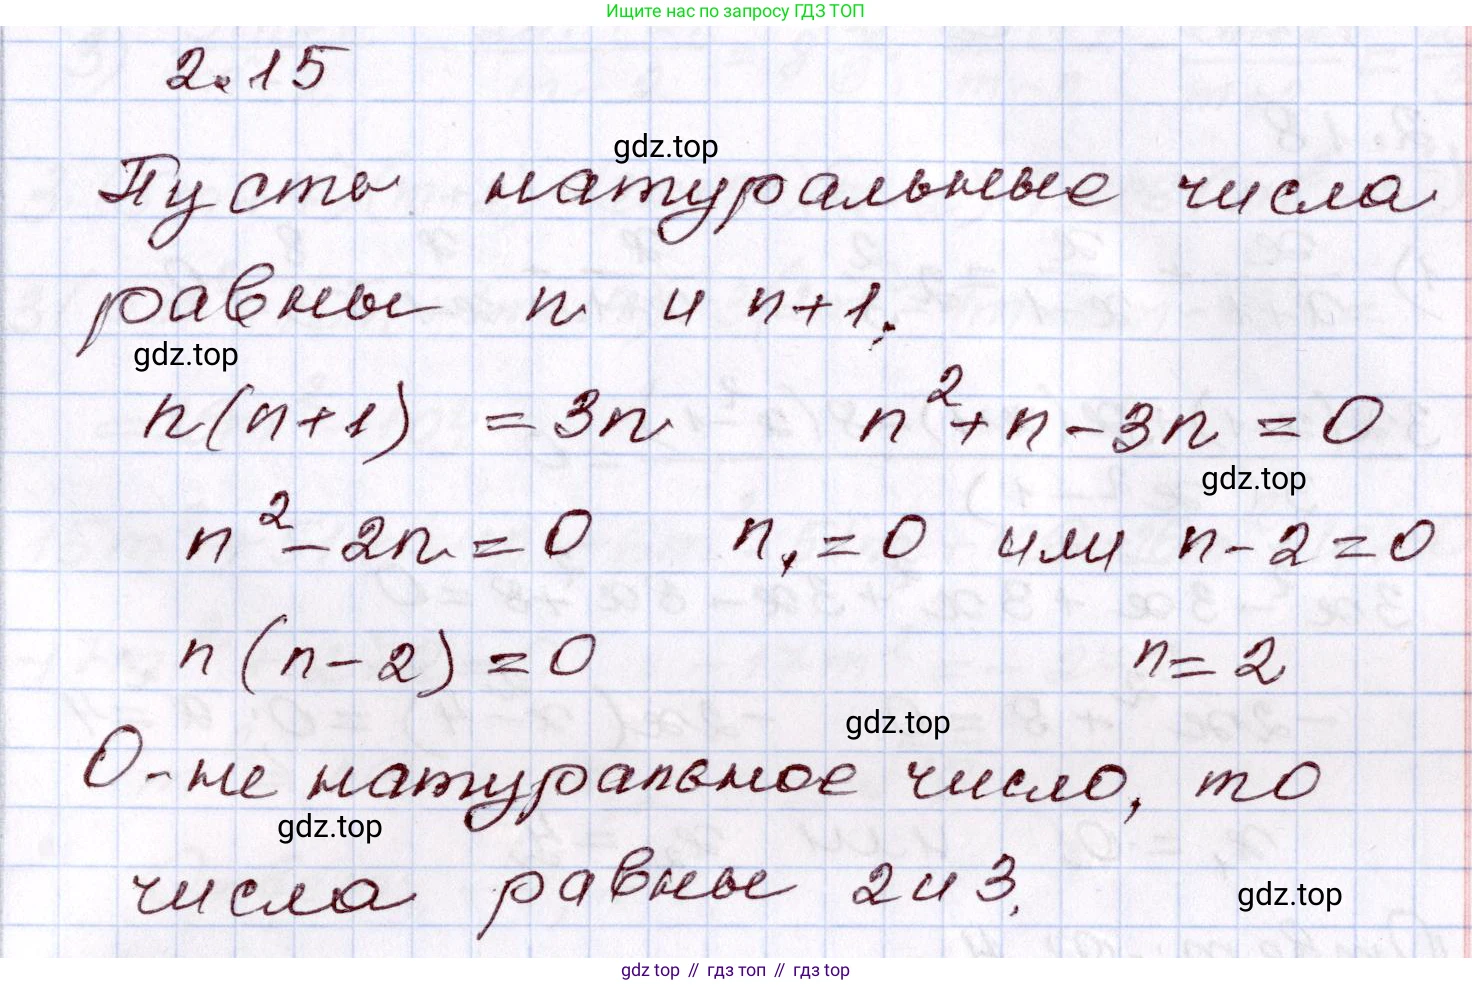 Ищите нас по запросу ГДЗ ТОП
2.15
gdz.top
Пусть натуральные числа
равны n и n+1.
gdz.top
n(n+1) = 3n n²+n-3n=0
gdz.top
n²-2n=0 n₁=0 или n-2=0
n(n-2)=0 n=2
gdz.top
0-не натуральное число, то
gdz.top
числа равны 2 и 3.
gdz.top
gdz top // гдз топ // gdz top